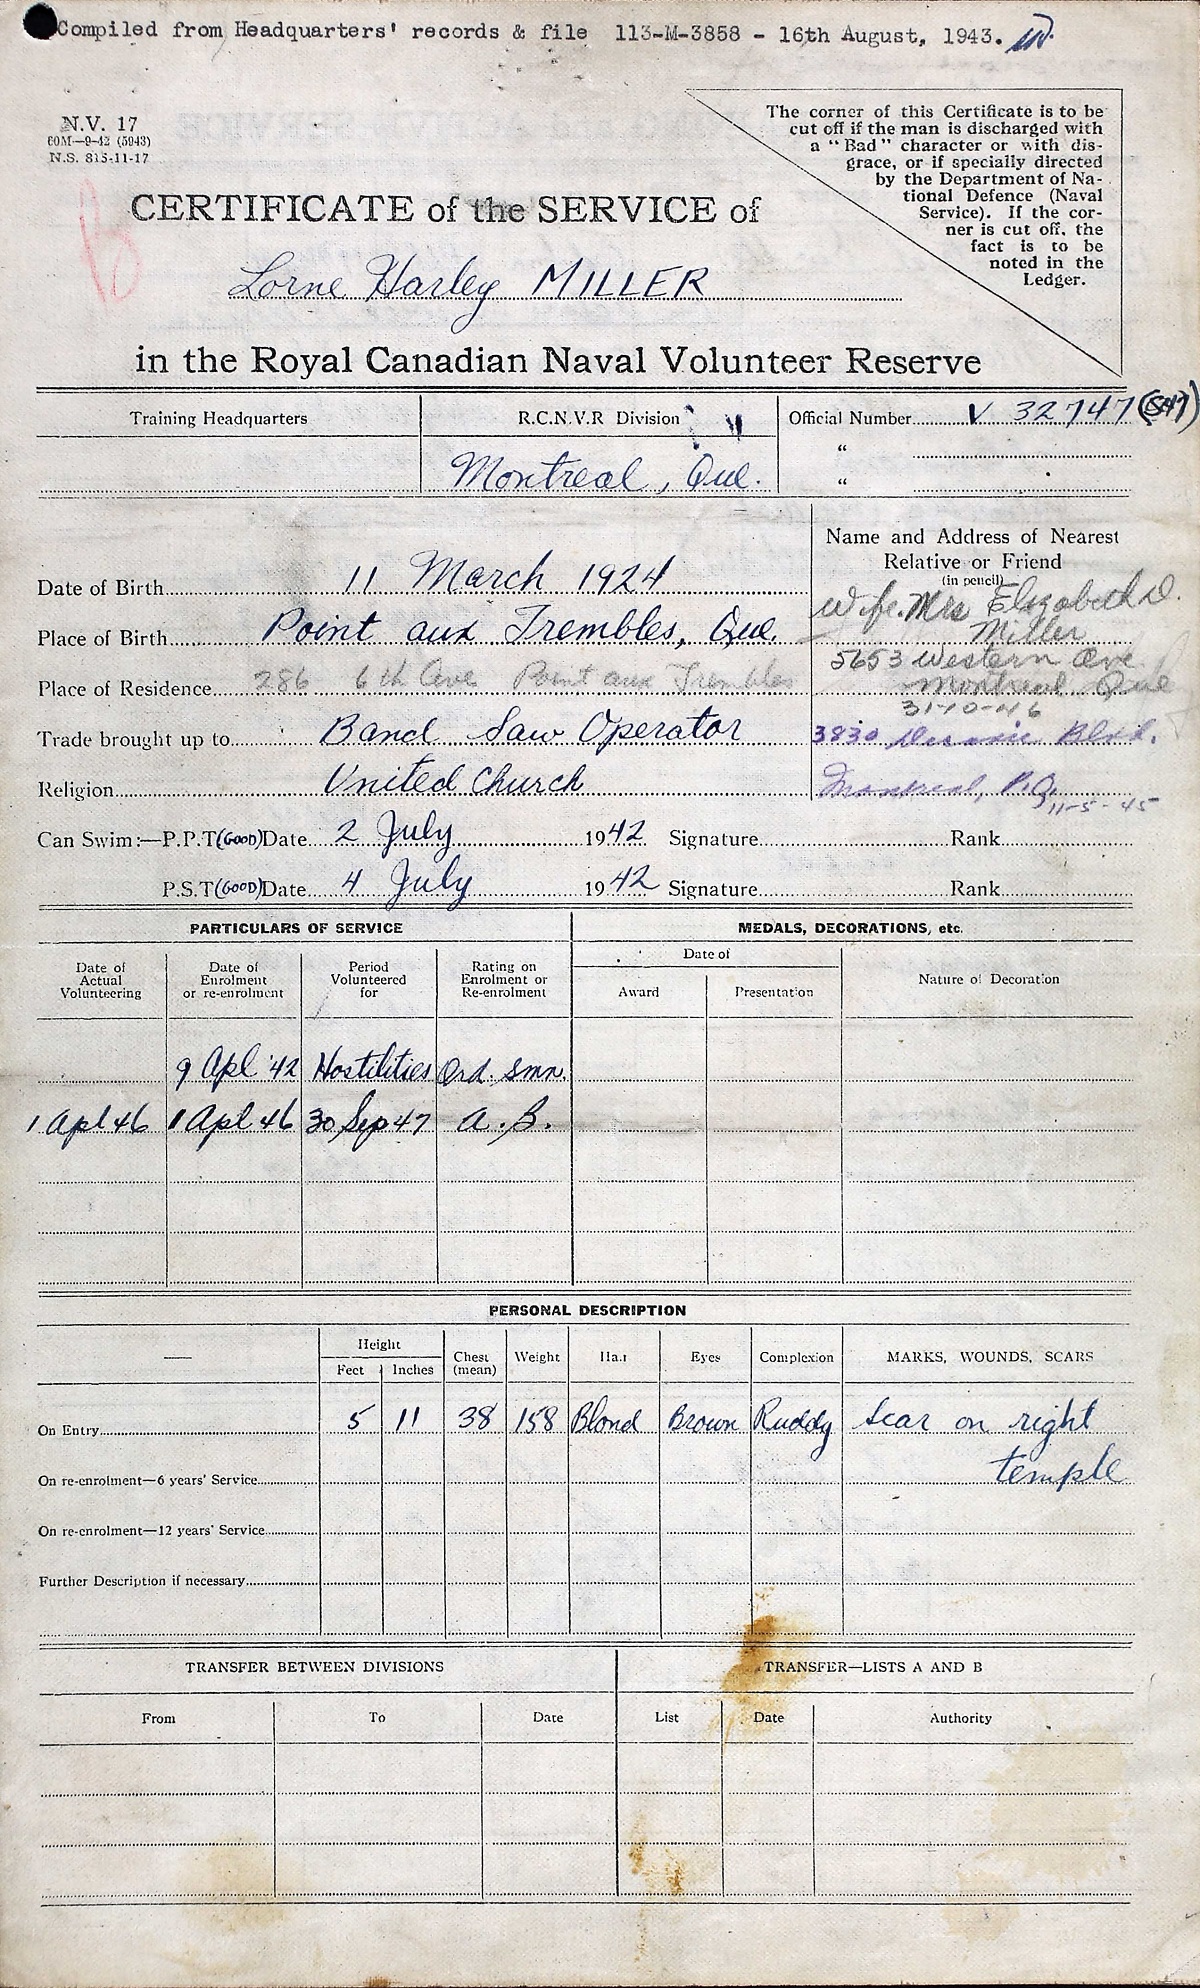 Compiled from Headquarters' records & file 113-M-3858 - 16th August, 1943.
N.V. 17
60M—9-42 (5943)
N.S. 815-11-17
The corner of this Certificate is to be
cut off if the man is discharged with
a "Bad" character or with dis-
grace, or if specially directed
by the Department of Na-
tional Defence (Naval
Service). If the cor-
ner is cut off, the
fact is to be
noted in the
Ledger.
CERTIFICATE of the SERVICE of
Lorne Harley MILLER
in the Royal Canadian Naval Volunteer Reserve
Training Headquarters
R.C.N.V.R Division
Montreal, Que.
Official Number V 32747
"
"
Name and Address of Nearest
Relative or Friend
(in pencil)
Wife. Mrs Elizabeth D.
Miller
5653 Western Ave
Montreal Que
31-10-46
3830 Blvd.
Montreal, P.Q.
11-5-45
Date of Birth 11 March 1924
Place of Birth Point aux Trembles, Que.
Place of Residence 286 6th Ave Point aux Trembles
Trade brought up to Band Saw Operator
Religion United Church
Can Swim:—P.P.T (GOOD) Date 2 July 1942 Signature Rank
P.S.T (GOOD) Date 4 July 1942 Signature Rank
PARTICULARS OF SERVICE
MEDALS, DECORATIONS, etc.
Date of
Actual
Volunteering
Date of
Enrolment
or re-enrolment
Period
Volunteered
for
Rating on
Enrolment or
Re-enrolment
Date of
Award
Presentation
Nature of Decoration
9 Apl '42 Hostilities Ord. Smn.
1 Apl 46 1 Apl 46 30 Sep 47 A.B.
PERSONAL DESCRIPTION
—
Height
Feet
Inches
Chest
(mean)
Weight
Hair
Eyes
Complexion
MARKS, WOUNDS, SCARS
On Entry 5 11 38 158 Blond Brown Ruddy Scar on right
temple
On re-enrolment—6 years' Service
On re-enrolment—12 years' Service
Further Description if necessary
TRANSFER BETWEEN DIVISIONS
TRANSFER—LISTS A AND B
From
To
Date
List
Date
Authority